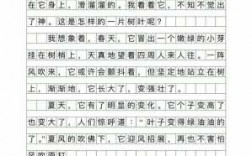 在它身上，滑溜溜的。我看着它，不知不觉出
了神。这是怎样的一片树叶呢？
我想象着，春天，它冒出一个嫩绿的小芽
挂在树梢上，天真地望着四周人来人往。一阵
风吹来，它或许会颤抖着，但坚定地站立在树
上，渐渐地，它长大了，变成了一片小叶。
夏天，它有了明显的变化。它个子变高了
也变大了，人们惊呼道："叶子变得绿油油的
了。"夏风的吹拂下，它迎风招展，再也不害怕
风吹雨打